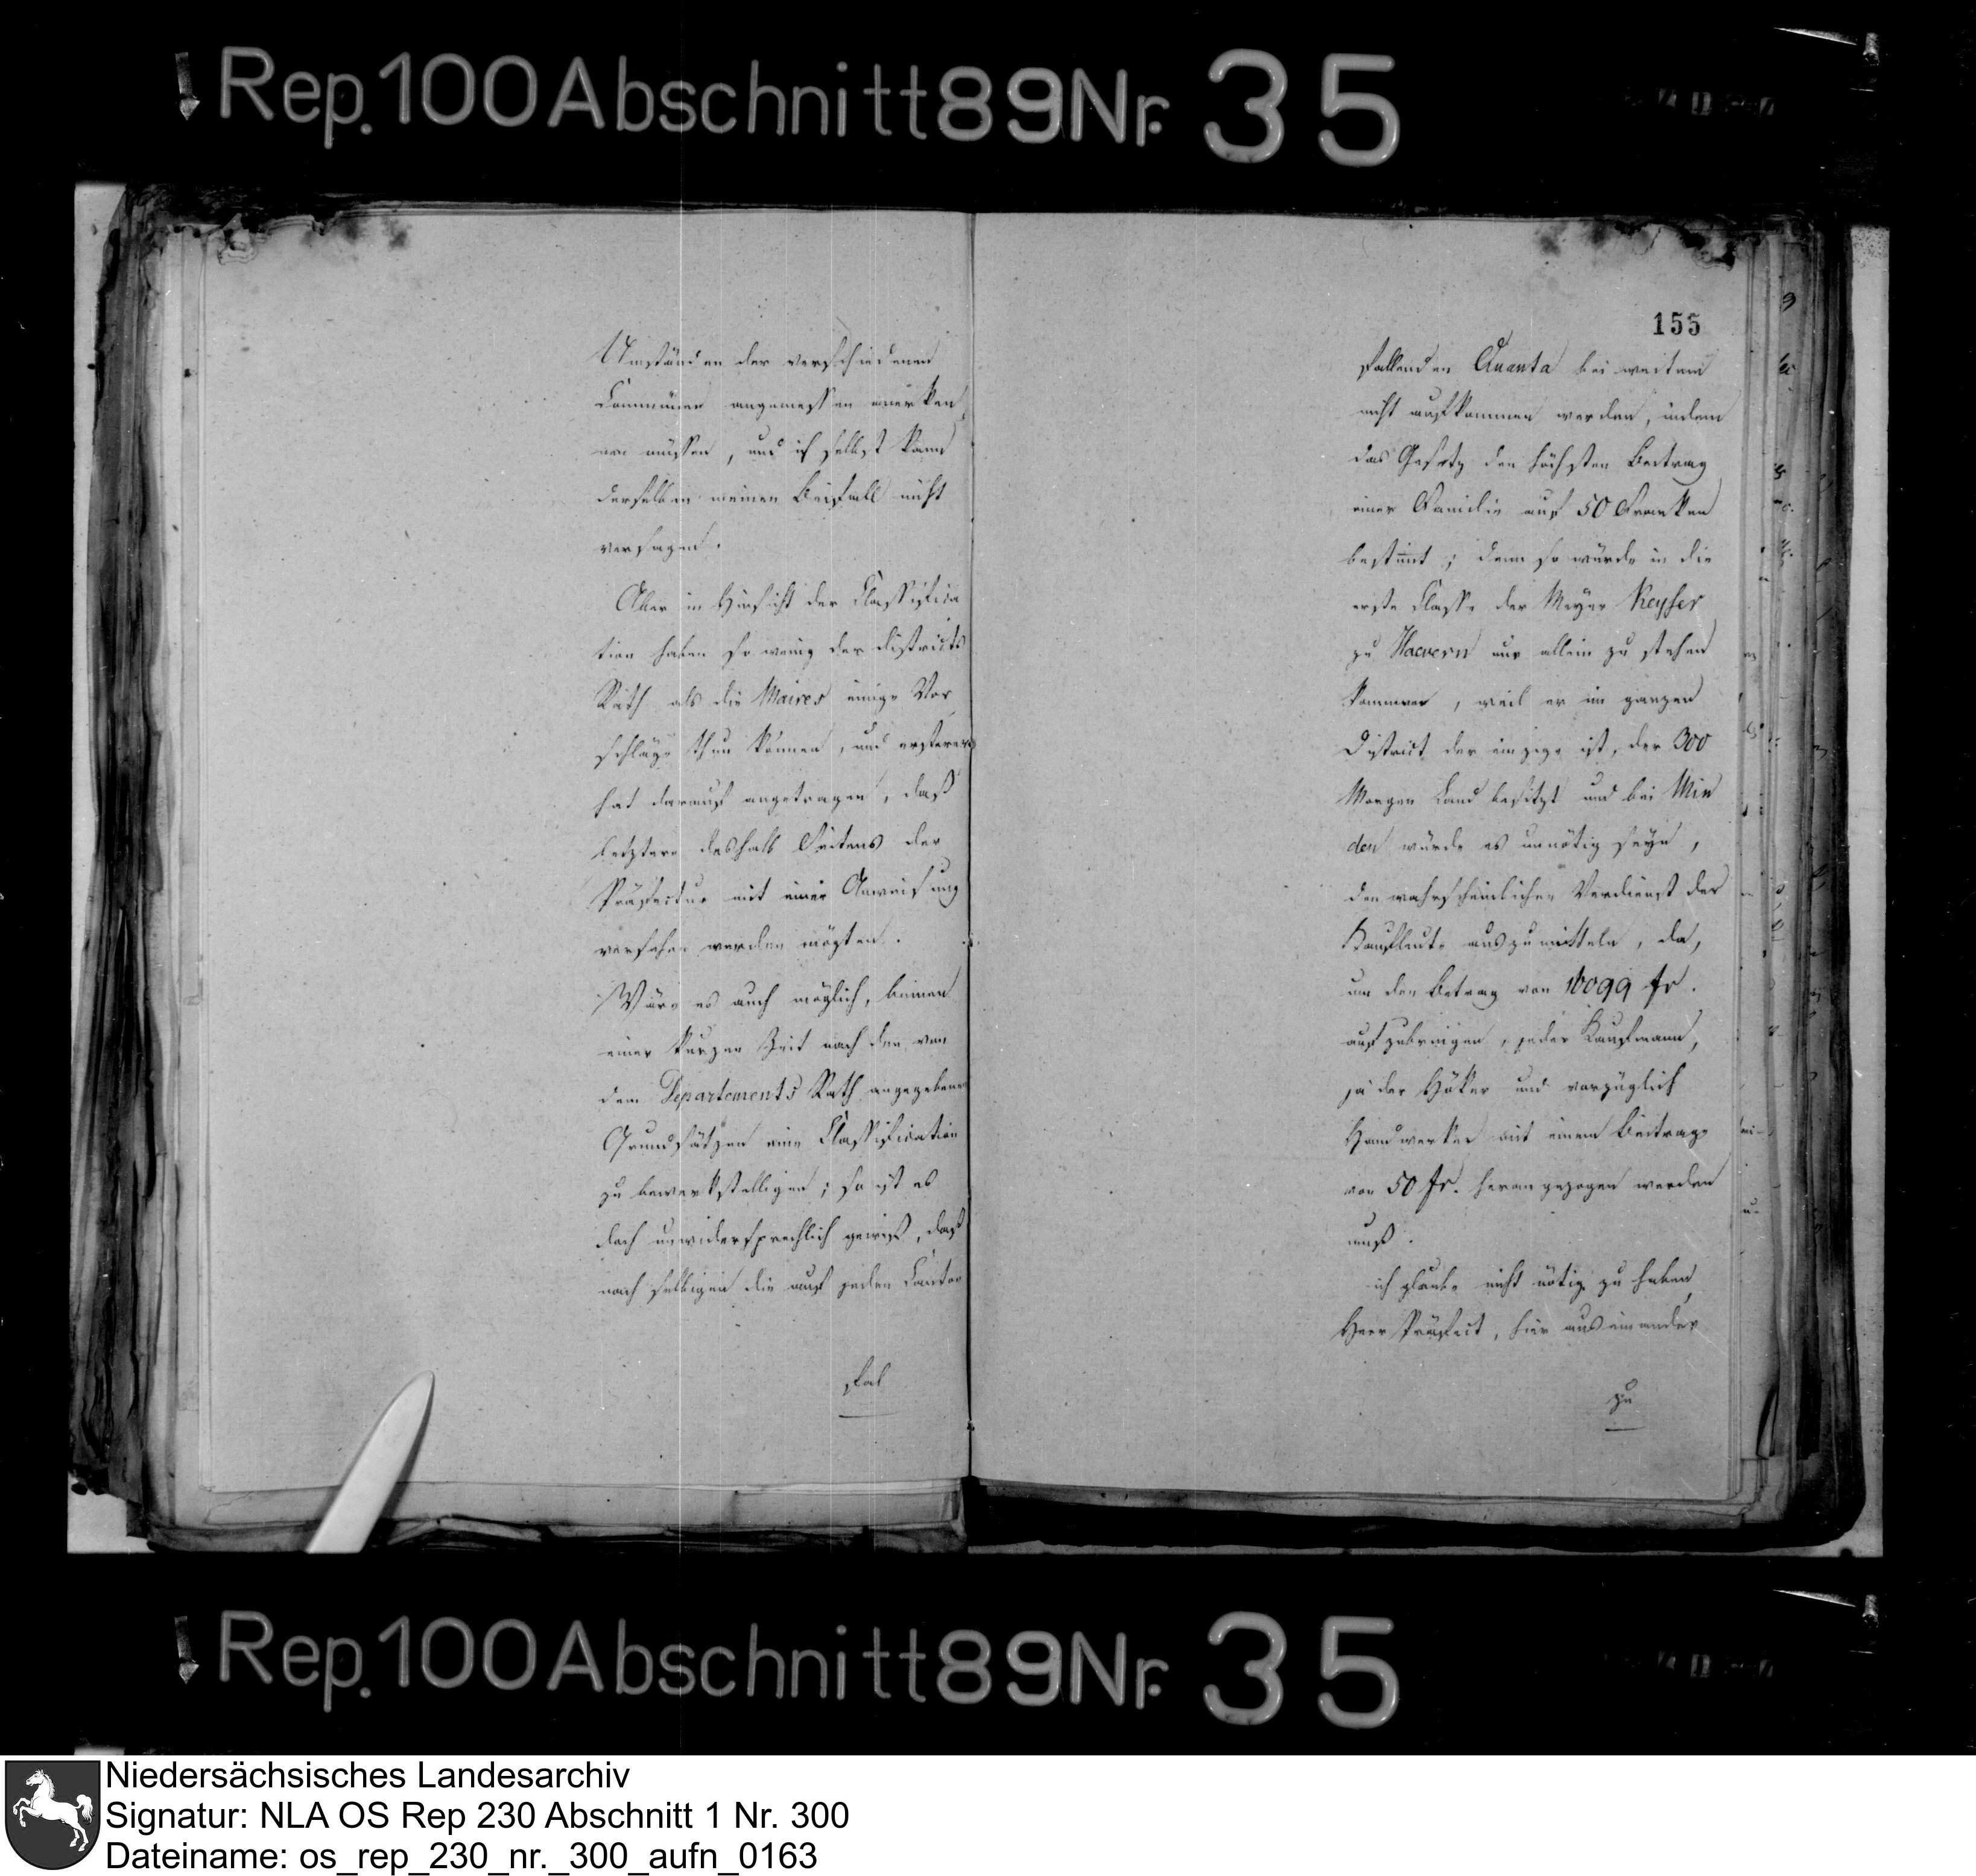 Rep. 100 Abschnitt 89 Nr. 35
Umständen der verschiedenen
Communen angemessen anerken„
nen müssen, und ich selbst kann
derselben meinen Beifall nicht
versagen.
Aber in Hinsicht der Classifica
tion haben so wenig der Districts
Rath als die Maires einige Vor„
schläge thun können, und ersterer
hat darauf angetragen, daß
letztere deshalb Seitens der
Präfectur mit einer Anweisung
versehen werden mögten.
Wäre es auch möglich, binnen
einer kurzen Zeit nach den von
dem Departements Rath angegebenen
Grundsätzen eine Classification
zu bewerkstelligen; so ist es
doch unwidersprechlich gewiß, daß
nach selbigen die auf jeden Canton
fal
155
fallenden Quanta bei weitem
nicht aufkommen werden, indem
das Gesetz den höchsten Beitrag
einer Familie auf 50 Franken
bestimt; denn so würde in die
erste Classe der Meyer Keyser
zu Haevern nur allein zu stehen
kommen, weil er im ganzen
District der einzige ist, der 300
Morgen Land besitzt und bei Min
den würde es unnötig seyn,
den wahrscheinlichen Verdienst der
Kaufleute auszumitteln, da,
um den Betrag von 10099 fr.
aufzubringen, jeder Kaufmann,
ja der Höker und vorzüglich
Handwerker mit einem Beitrage
von 50 fr. herangezogen werden
muß.
ich glaube nicht nötig zu haben,
Herr Präfect, hier auseinander
zu
Rep. 100 Abschnitt 89 Nr. 35
Niedersächsisches Landesarchiv
Signatur: NLA OS Rep 230 Abschnitt 1 Nr. 300
Dateiname: os_rep_230_nr._300_aufn_0163